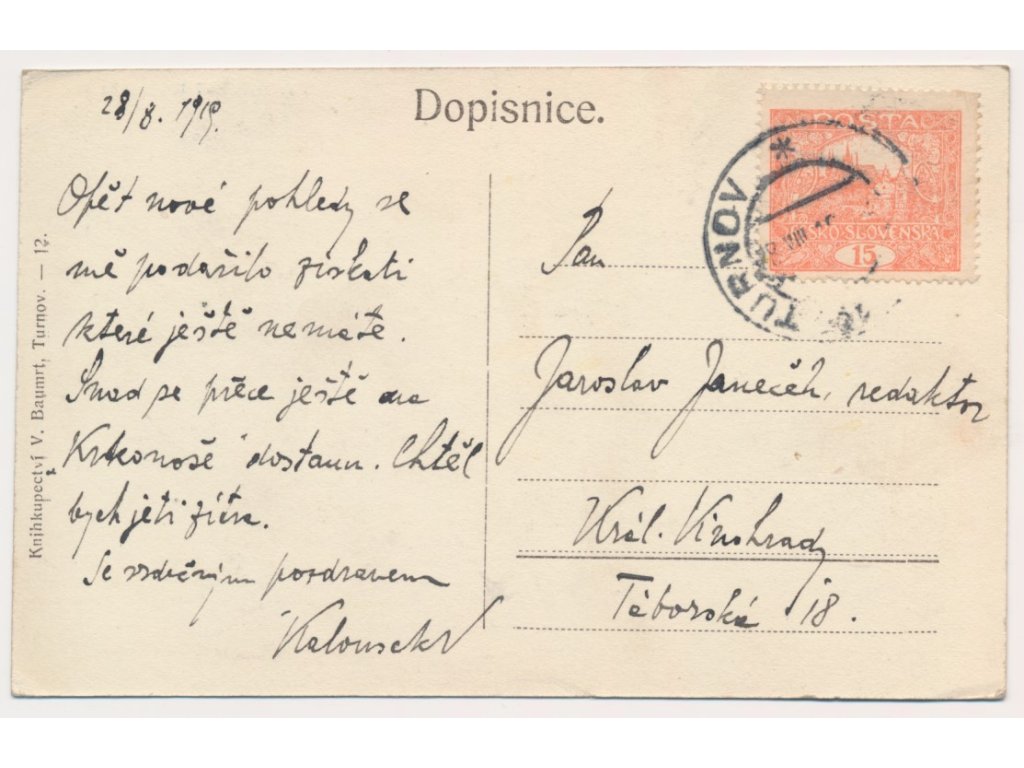 28/8. 1919.
Dopisnice.
Opět nové pohledy se
mě podařilo získati
které ještě nemáte.
Snad se přece ještě na
Krkonoše dostanu. Chtěl
bych jeti zítra.
Se srdečným pozdravem
Kalousek
Knihkupectví V. Baumrt, Turnov. — 12.
POŠTA
ČESKO SLOVENSKÁ
15
TURNOV
Pan
Jaroslav Janeček, redaktor
Král. Vinohrady
Táborská 18.